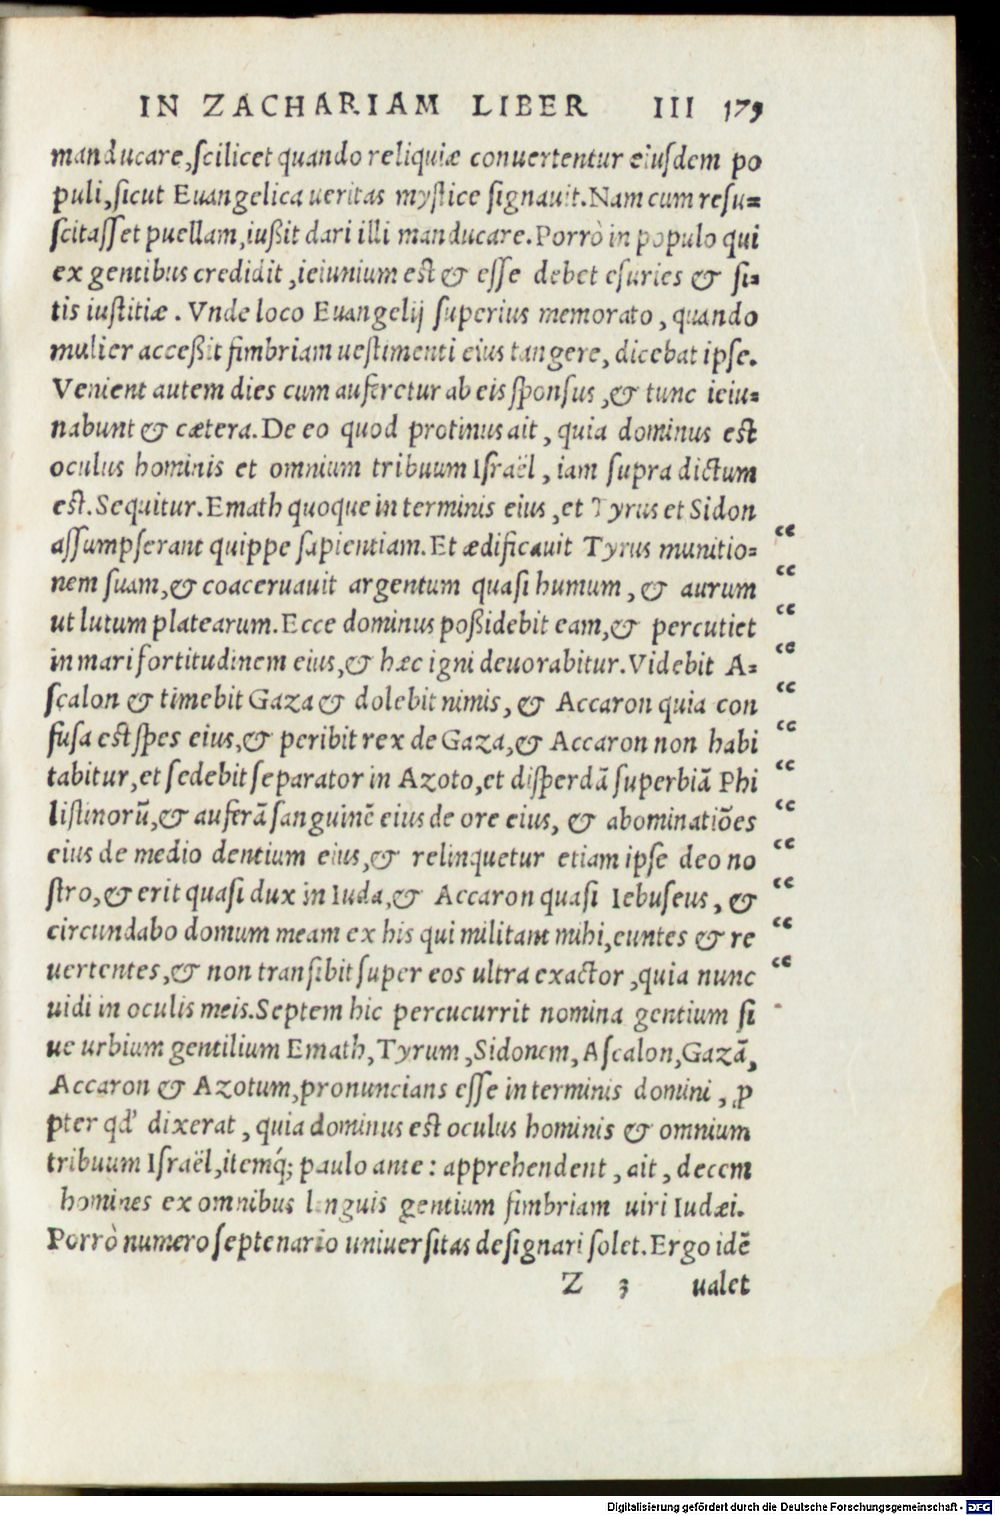 IN ZACHARIAM LIBER III 179
manducare, scilicet quando reliquiæ conuertentur eiusdem po
puli, sicut Euangelica ueritas mystice signauit. Nam cum resu-
scitasset puellam, iußit dari illi manducare. Porrò in populo qui
ex gentibus credidit, ieiunium est & esse debet esuries & si-
tis iustitiæ. Vnde loco Euangelij superius memorato, quando
mulier acceßit fimbriam uestimenti eius tangere, dicebat ipse.
Venient autem dies cum auferetur ab eis sponsus, & tunc ieiu-
nabunt & cætera. De eo quod protinus ait, quia dominus est
oculus hominis et omnium tribuum Israël, iam supra dictum
est. Sequitur. Emath quoque in terminis eius, et Tyrus et Sidon
assumpserant quippe sapientiam. Et ædificauit Tyrus munitio- “
nem suam, & coaceruauit argentum quasi humum, & aurum “
ut lutum platearum. Ecce dominus poßidebit eam, & percutiet “
in mari fortitudinem eius, & hæc igni deuorabitur. Videbit A- “
scalon & timebit Gaza & dolebit nimis, & Accaron quia con “
fusa est spes eius, & peribit rex de Gaza, & Accaron non habi “
tabitur, et sedebit separator in Azoto, et disperdā superbiā Phi “
listinorū, & auferā sanguinē eius de ore eius, & abominatiōes “
eius de medio dentium eius, & relinquetur etiam ipse deo no “
stro, & erit quasi dux in Iuda, & Accaron quasi Iebuseus, & “
circundabo domum meam ex his qui militant mihi, euntes & re “
uertentes, & non transibit super eos ultra exactor, quia nunc “
uidi in oculis meis. Septem hic percucurrit nomina gentium si
ue urbium gentilium Emath, Tyrum, Sidonem, Ascalon, Gazā,
Accaron & Azotum, pronuncians esse in terminis domini, ꝓ
pter qd’ dixerat, quia dominus est oculus hominis & omnium
tribuum Israël, itemq́; paulo ante: apprehendent, ait, decem
homines ex omnibus linguis gentium fimbriam uiri Iudæi.
Porrò numero septenario uniuersitas designari solet. Ergo idē
Z 3 ualet
Digitalisierung gefördert durch die Deutsche Forschungsgemeinschaft - DFG